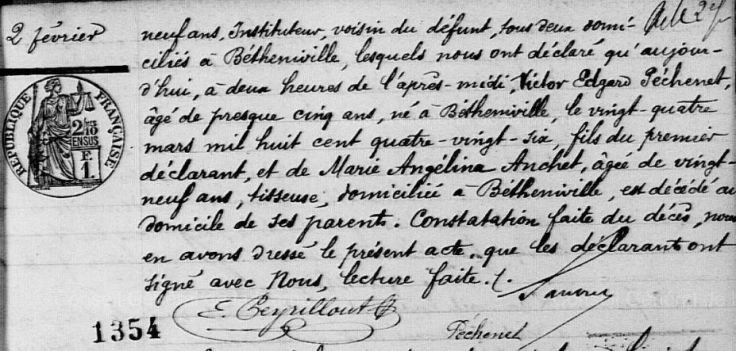 2 février
neuf ans, Instituteur, voisin du défunt, tous deux domi-
ciliés à Bétheniville, lesquels nous ont déclaré qu'aujour-
d'hui, à deux heures de l'après-midi, Victor Edgard Péchenet,
âgé de presque cinq ans, né à Bétheniville, le vingt-quatre
mars mil huit cent quatre-vingt-six, fils du premier
déclarant, et de Marie Angélina Anchet, âgée de vingt-
neuf ans, tisseuse, domiciliée à Bétheniville, est décédé au
domicile de ses parents. Constatation faite du décès, nous
en avons dressé le présent acte, que les déclarants ont
signé avec Nous, lecture faite ./.
RÉPUBLIQUE FRANÇAISE
2/10
EN SUS
F.
1
1354
Péchenet